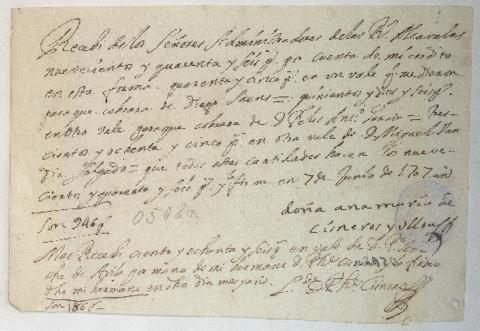 Recebi de los Señores Administradores de las Rs. Alcavalas
nuevecientos y quarenta y seis ps. por cuenta de mi credito
en esta forma. quarenta y cinco ps. en un vale q me dieron
para que cobrara de Diego = quinientos y diez y seis ps.
en otro vale para que cobrara de D. = tres
cientos y ochenta y cinco ps. en otro vale de D. Miguel Juan
Salgado = que todas estas cantidades hacen los nueve
cientos y quarenta y seis ps. y lo firme en 7 de Junio de 1707 años
Son 946 ps.
doña ana maria de
cisneros y
Mas Recebi ciento y ochenta y seis ps en vale de D.
de Avila por mano de mi hermano D. lo firmo
dho mi hermano en dho dia mes y año.
Son 186 ps.